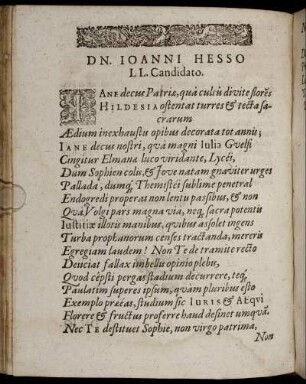 DN. IOANNI HESSO
LL. Candidato.
IANE decus Patriæ, quà cultu divite florẽs
HILDESIA ostentat turres & tecta sa-
crarum
Ædium inexhaustis opibus decorata tot annis;
IANE decus nostri, quà magni Iulia Gvelfi
Cingitur Elmana luco viridante, Lycei,
Dum Sophien colis, & Jove natam gnaviter urges
Pallada, dumq́; Themistei sublime penetral
Endogredi properas non lentu passibus, & non
Quà Volgi pars magna via, neq; sacra potentis
Iustitiæ illotis manibus, quibus assolet ingens
Turba prophanorum censes tractanda, mereris
Egregiam laudem! Non Te de tramite recto
Deijciat fallax imbellis opinio plebis,
Quod cœpsti pergas stadium decurrere, teq́;
Paulatim superes ipsum, quàm pluribus esto
Exemplo præeas, studium sic IURIS & AEqvi
Florere & fructus proferre haud desinet umquã.
Nec TE destituet Sophie, non virgo patrima,
Non